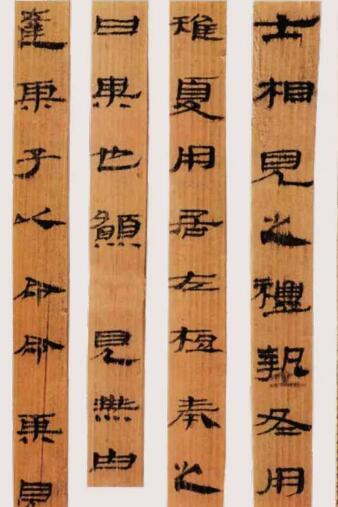 士相見之禮執冬用
雉夏用居左奉之
曰某也願見無由
達某子以命命某見